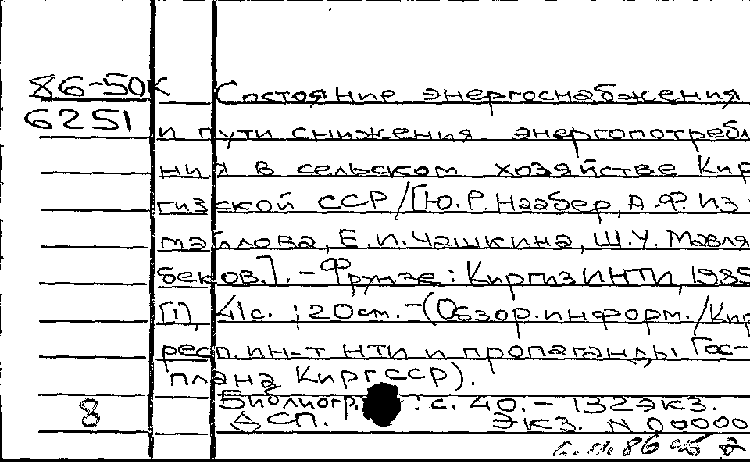 86-50К Состояние энергоснабжения
6251 и пути снижения энергопотребл
ния в сельском хозяйстве Кир
гизской ССР/[Ю.Р. Наабер, А.Ф. Из
майлова, Е.И. Чашкина, Ш.У. Мавля
беков.]. - Фрунзе: КиргизИНТИ, 1985
[1], 41с. ; 20см. - (Обзор. информ./Кир
респ. ин-т НТИ и пропаганды Гос-
плана КиргССР).
Библиогр. : с. 40. - 132 экз.
8 ДСП. Экз. N 00000